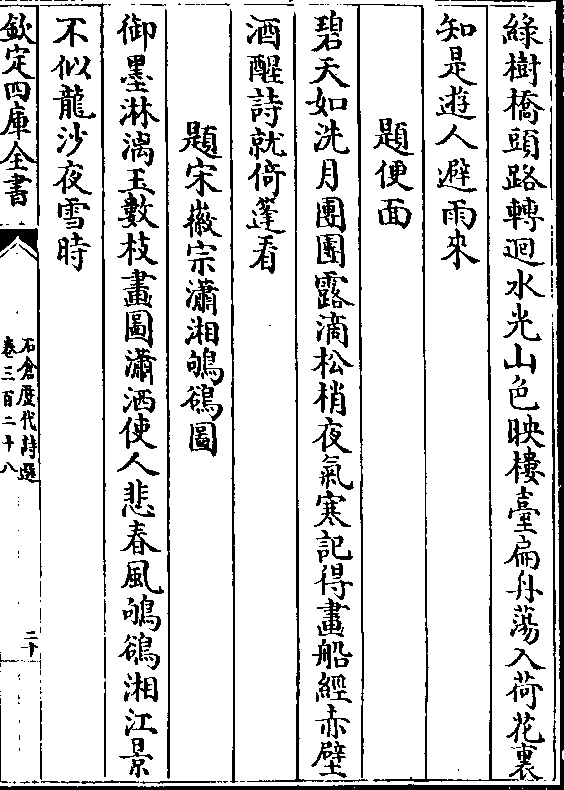 綠樹橋頭路轉迴水光山色映樓臺扁舟蕩入荷花裏
知是遊人避雨來
題便面
碧天如洗月團團露滴松梢夜氣寒記得畫船經赤壁
酒醒詩就倚篷看
題宋徽宗瀟湘鴝鵒圖
御墨淋漓玉數枝畫圖瀟洒使人悲春風鴝鵒湘江景
不似龍沙夜雪時
欽定四庫全書
石倉歷代詩選
卷三百二十八
二十